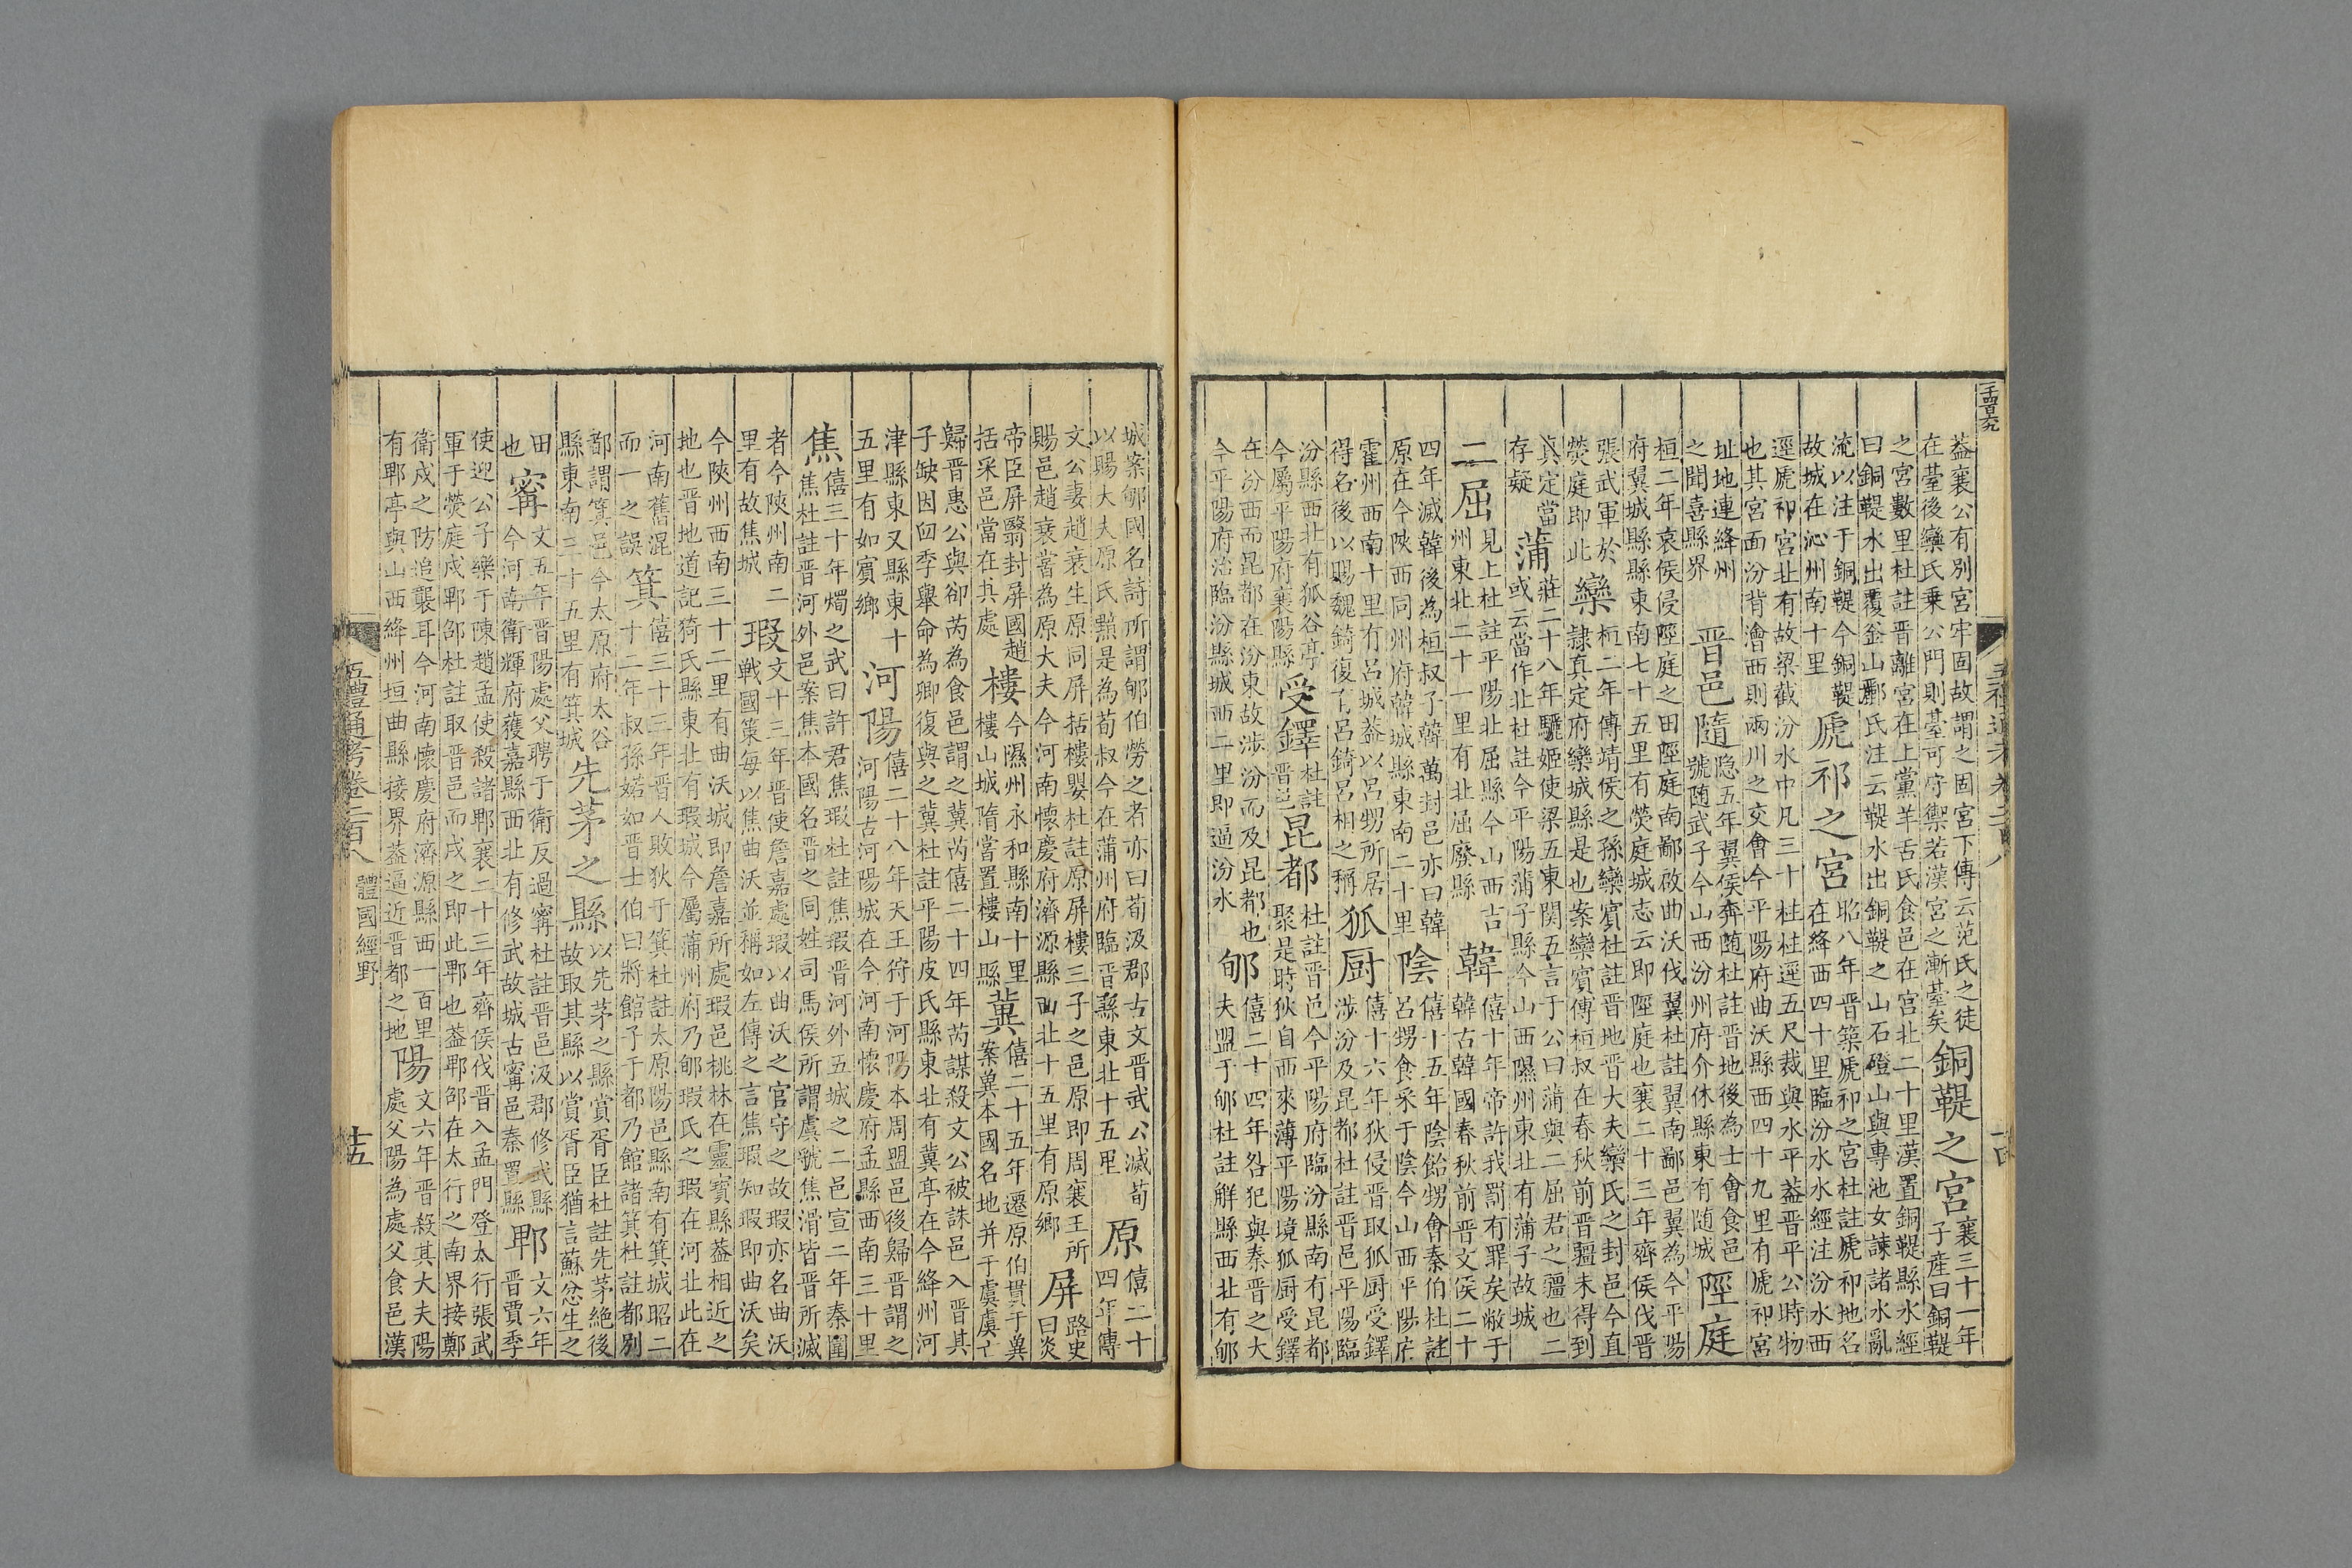 三千四百六九
五禮通考卷二百八
十四
葢襄公有別宮牢固故謂之固宮下傳云范氏之徒
在䑓後欒氏乗公門則䑓可守禦若漢宮之漸䑓矣
銅鞮之宮
襄三十一年
子產曰銅鞮
之宮數里杜註晉離宮在上黨羊舌氏食邑在宮北二十里漢置銅鞮縣水經
曰銅鞮水出覆釜山酈氏注云鞮水出銅鞮之山石磴山與專池女諫諸水亂
流以注于銅鞮今銅鞮
故城在沁州南十里
虒祁之宮
昭八年晉築虒祁之宮杜註虒祁地名
在絳西四十里臨汾水水經注汾水西
逕虒祁宮北有故梁截汾水中凡三十柱柱逕五尺裁與水平葢晉平公時物
也其宮面汾背澮西則兩川之交會今平陽府曲沃縣西四十九里有虒祁宮
址地連絳州
之聞喜縣界
晉邑隨
隐五年翼侯奔随杜註晉地後為士會食邑
號随武子今山西汾州府介休縣東有随城
陘庭
桓二年哀侯侵陘庭之田陘庭南鄙啟曲沃伐翼杜註翼南鄙邑翼為今平陽
府翼城縣縣東南七十五里有熒庭城志云即陘庭也襄二十三年齊侯伐晉
張武軍於
熒庭即此
欒
桓二年傳靖侯之孫欒賔杜註晉地晉大夫欒氏之封邑今直
隷真定府欒城縣是也案欒賔傳桓叔在春秋前晉疆未得到
真定當
存疑
蒲
莊二十八年驪姬使梁五東関五言于公曰蒲與二屈君之疆也二
或云當作北杜註今平陽蒲子縣今山西隰州東北有蒲子故城
二屈
見上杜註平陽北屈縣今山西吉
州東北二十一里有北屈廢縣
韓
僖十年帝許我罰有罪矣敝于
韓古韓國春秋前晉文侯二十
四年滅韓後為桓叔子韓萬封邑亦曰韓
原在今陜西同州府韓城縣東南二十里
陰
僖十五年陰飴甥會秦伯杜註
呂甥食采于陰今山西平陽府
霍州西南十里有呂城葢以呂甥所居
得名後以賜魏錡復有呂錡呂相之稱
狐厨
僖十六年狄侵晉取狐厨受鐸
涉汾及昆都杜註晉邑平陽臨
汾縣西北有狐谷亭
今屬平陽府襄陽縣
受鐸
杜註
晉邑
昆都
杜註晉邑今平陽府臨汾縣南有昆都
聚是時狄自西來薄平陽境狐厨受鐸
在汾西而昆都在汾東故涉汾而及昆都也
今平陽府治臨汾縣城西二里即逼汾水
郇
僖二十四年咎犯與秦晉之大
夫盟于郇杜註觧縣西北有郇
城案郇國名詩所謂郇伯勞之者亦曰荀汲郡古文晉武公滅荀
以賜大夫原氏黯是為荀叔今在蒲州府臨晉縣東北十五里
原
僖二十
四年傳
文公妻趙衰生原同屏括樓嬰杜註原屏樓三子之邑原即周襄王所
賜邑趙衰嘗為原大夫今河南懷慶府濟源縣西北十五里有原鄉
屏
路史
曰炎
帝臣屏翳封屏國趙
括采邑當在其處
樓
今隰州永和縣南十里
樓山城隋嘗置樓山縣
冀
僖二十五年遷原伯貫于冀
案冀本國名地并于虞虞亡
歸晉惠公與卻芮為食邑謂之冀芮僖二十四年芮謀殺文公被誅邑入晉其
子缺因臼季舉命為卿復與之冀杜註平陽皮氏縣東北有冀亭在今絳州河
津縣東又縣東十
五里有如賔鄉
河陽
僖二十八年天王狩于河陽本周盟邑後歸晉謂之
河陽古河陽城在今河南懷慶府孟縣西南三十里
焦
僖三十年燭之武曰許君焦瑕杜註焦瑕晉河外五城之二邑宣二年秦圍
焦杜註晉河外邑案焦本國名晉之同姓司馬侯所謂虞虢焦滑皆晉所滅
者今陜州南二
里有故焦城
瑕
文十三年晉使詹嘉處瑕以曲沃之官守之故瑕亦名曲沃
戰國策每以焦曲沃並稱如左傳之言焦瑕知瑕即曲沃矣
今陜州西南三十二里有曲沃城即詹嘉所處瑕邑桃林在靈寶縣葢相近之
地也晉地道記猗氏縣東北有瑕城今屬蒲州府乃郇瑕氏之瑕在河北此在
河南舊混
而一之誤
箕
僖三十三年晉人敗狄于箕杜註太原陽邑縣南有箕城昭二
十二年叔孫婼如晉士伯曰將館子于都乃館諸箕杜註都別
都謂箕邑今太原府太谷
縣東南三十五里有箕城
先茅之縣
以先茅之縣賞胥臣杜註先茅絶後
故取其縣以賞胥臣猶言蘇忿生之
田
也
甯
文五年晉陽處父聘于衛反過甯杜註晉邑汲郡修武縣
今河南衛輝府獲嘉縣西北有修武故城古甯邑秦置縣
鄆
文六年
晉賈季
使迎公子樂于陳趙孟使殺諸鄆襄二十三年齊侯伐晉入孟門登太行張武
軍于熒庭戍鄆邵杜註取晉邑而戍之即此鄆也葢鄆邵在太行之南界接鄭
衛戍之防追襲耳今河南懷慶府濟源縣西一百里
有鄆亭與山西絳州垣曲縣接界葢逼近晉都之地
陽
文六年晉殺其大夫陽
處父陽為處父食邑漢
五禮通考卷二百八
體國經野
十五